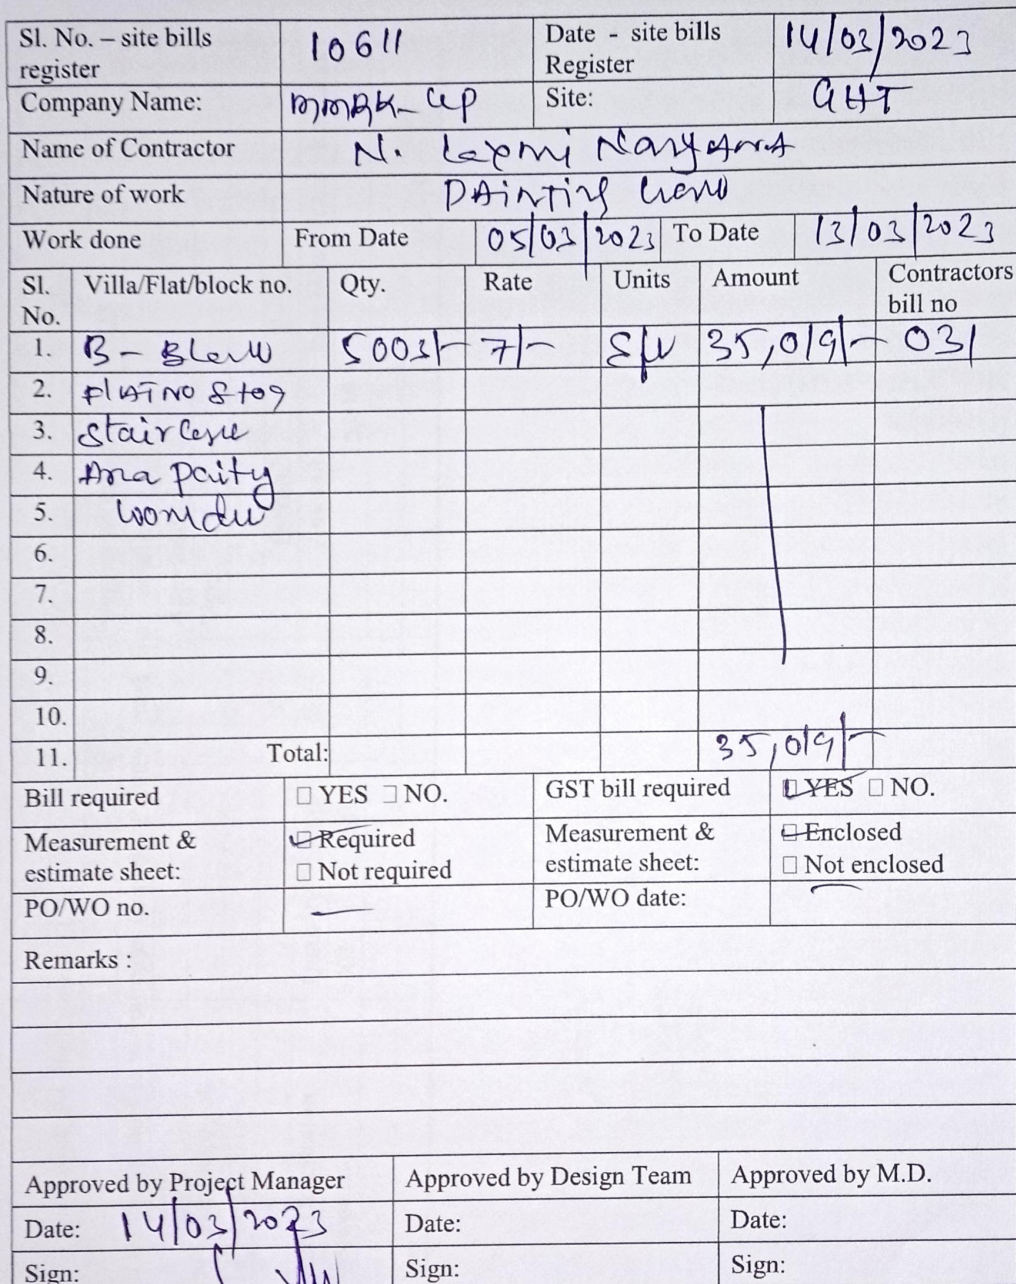 Sl. No. – site bills register 10611 Date - site bills Register 14/03/2023
Company Name: Site: GHT
Name of Contractor N. Laxmi Narayana
Nature of work Painting
Work done From Date 05/03/2023 To Date 13/03/2023
Sl. No. Villa/Flat/block no. Qty. Rate Units Amount Contractors bill no
1. B - 5003/- 7/- 35,019/- 031
2.
3.
4.
5.
6.
7.
8.
9.
10.
11. Total: 35,019/-
Bill required □ YES □ NO. GST bill required □ YES □ NO.
Measurement & estimate sheet: □ Required □ Not required Measurement & estimate sheet: □ Enclosed □ Not enclosed
PO/WO no. — PO/WO date:
Remarks :
Approved by Project Manager Approved by Design Team Approved by M.D.
Date: 14/03/2023 Date: Date:
Sign: Sign: Sign: